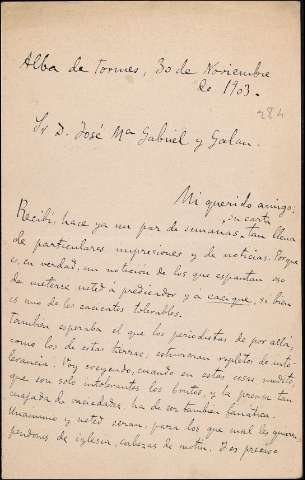 Alba de Tormes, 30 de Noviembre
de 1903.
284
Sr D. José Mª Gabriel y Galan.
Mi querido amigo:
su carta
Recibí, hace ya un par de semanas, tan llena
de particulares impresiones y de noticias. Porque
es, en verdad, un notición de los que espantan eso
de meterse usted á predicador y a cacique, si bien
es uno de los caciestos tolerables.
Tambien esperaba el que los periodistas de por allá,
como los de estas tierras, estuvieran repletos de into-
lerancia. Voy creyendo, cuando en estas cosas medito,
que son solo intolerantes los brutos, y la prensa tan
cuajada de vaciedades, ha de ser tambien fanática.
Unamuno y usted serán, para los que mal les quieren,
pendones de iglesia, cabezas de motin. Y es preciso